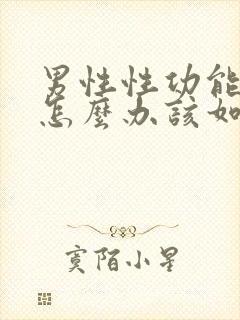 男性性功能
怎麼办該如
寞陌小星